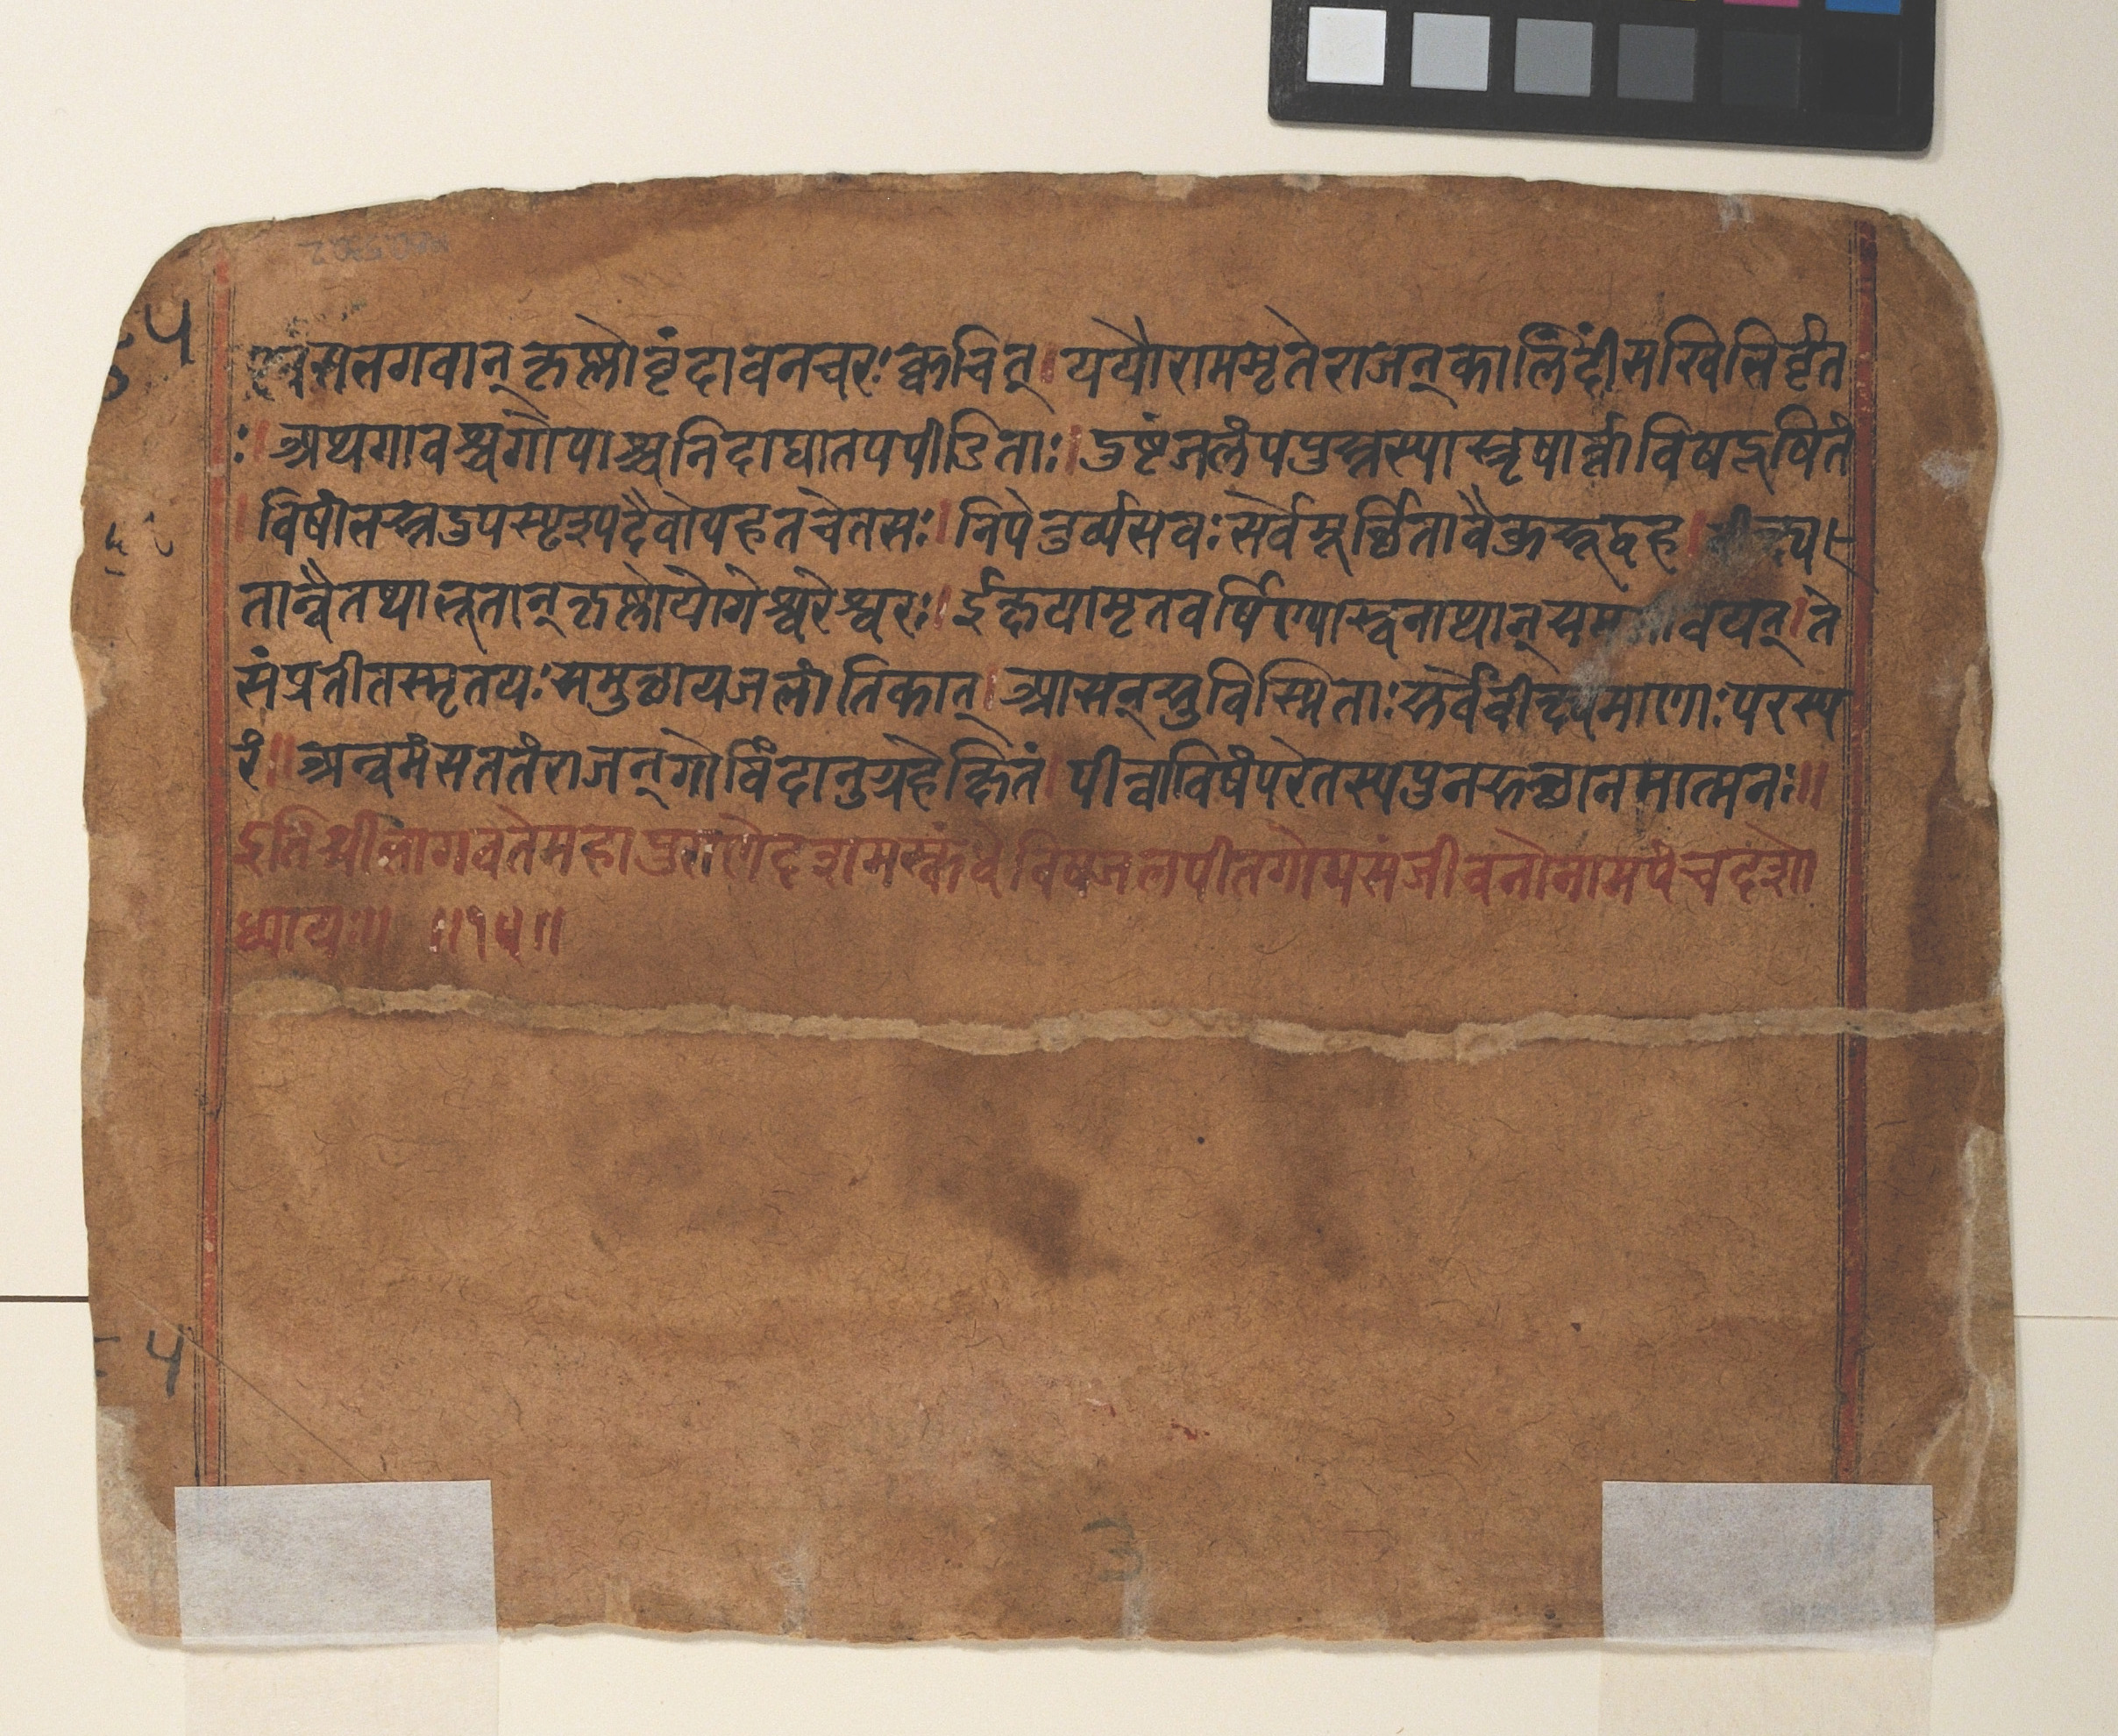 एवं स भगवान् कृष्णो वृंदावनचरः क्वचित् । ययौ राममृते राजन् कालिंदीं सखिभिर्वृत
ः । अथ गावश्च गोपाश्च निदाघातपपीडिताः । दुष्टं जलं पपुस्तस्यास्तृषार्त्ता विषदूषितं
। विषांभस्तदुपस्पृश्य दैवोपहतचेतसः । निपेतुर्व्यसवः सर्वे मूर्छिता वै कुरूद्वह । वीक्ष्य
तान्वै तथाभूतान् कृष्णो योगेश्वरेश्वरः । ईक्षयामृतवर्षिण्या स्वनाथान् समजीवयत् । ते
संप्रतीतस्मृतयः समुत्थाय जलांतिकात् । आसन् सुविस्मिताः सर्वे वीक्ष्यमाणाः परस्प
रं ॥ अन्वमंसत तं राजन् गोविंदानुग्रहेक्षितं । पीत्वा विषं परेतस्य पुनरुत्थानमात्मनः ॥
इति श्रीभागवते महापुराणे दशमस्कंधे विषजलपीतगोपसंजीवनोनाम पंचदशो
ध्यायः ॥ ॥१५॥
3